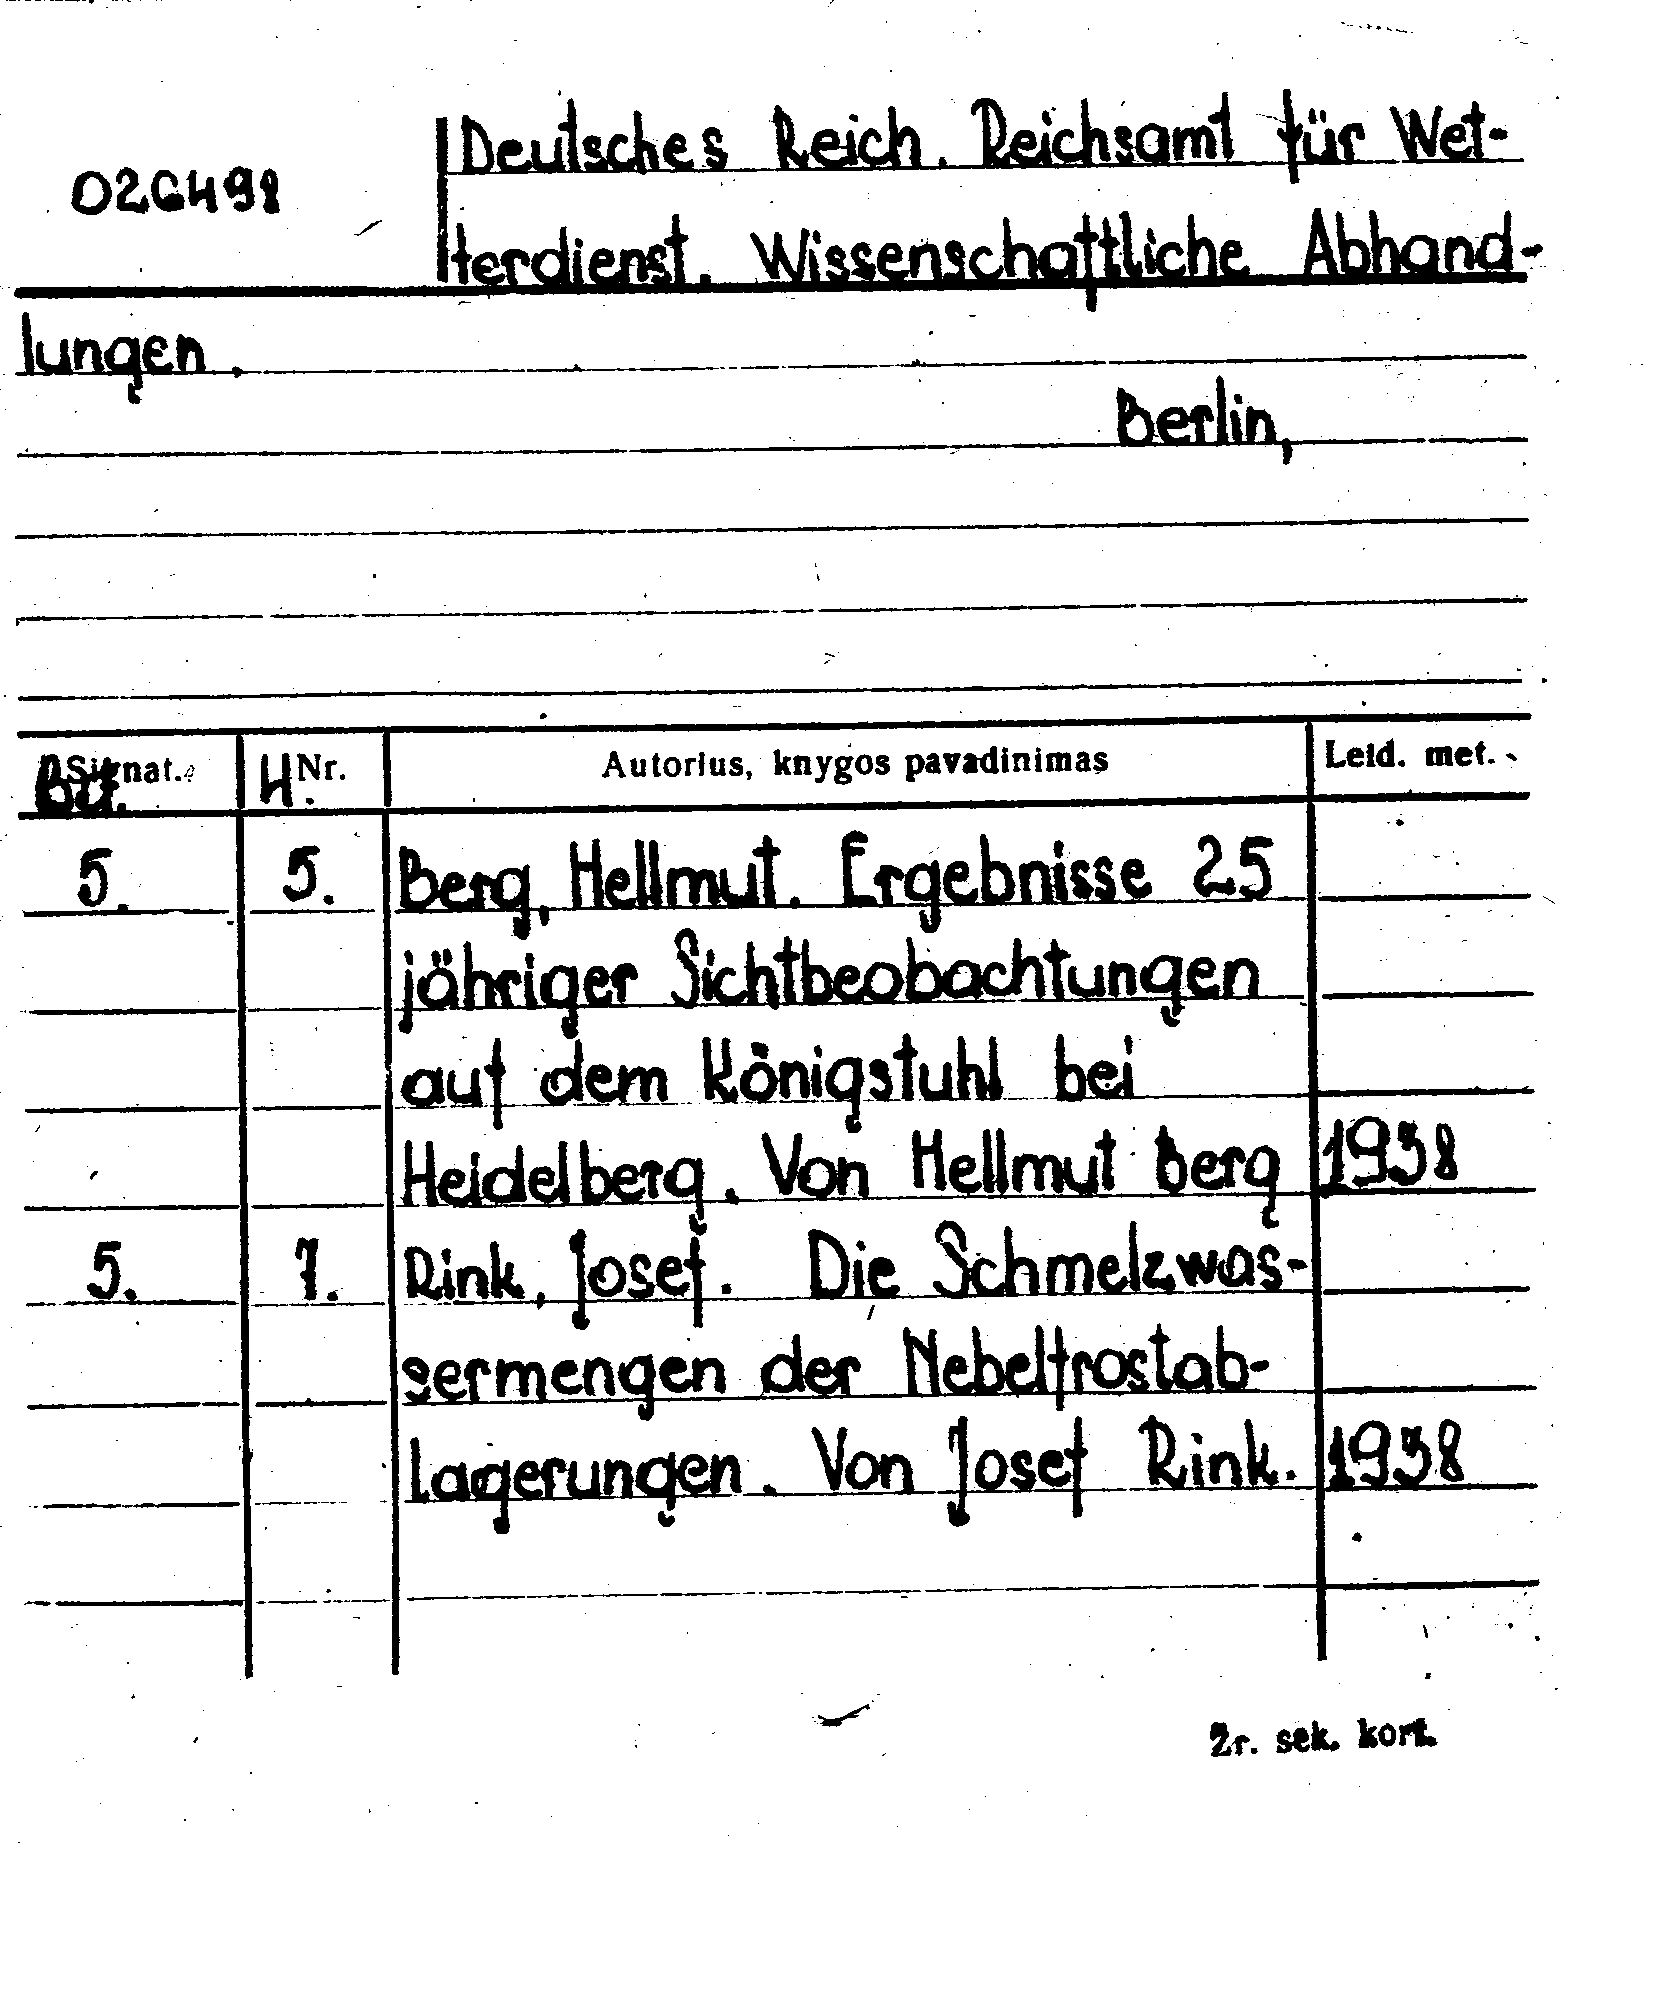 Deutsches Reich. Reichsamt für Wet-
026498
terdienst. Wissenschaftliche Abhand-
lungen.
Berlin,
Bd. Signat. H. Nr. Autorius, knygos pavadinimas Leid. met.
5. 5. Berg, Hellmut. Ergebnisse 25
jähriger Sichtbeobachtungen
auf dem Königstuhl bei
Heidelberg. Von Hellmut Berg 1938
5. 7. Rink, Josef. Die Schmelzwas-
sermengen der Nebelfrostab-
lagerungen. Von Josef Rink. 1938
2r. sek. kort.